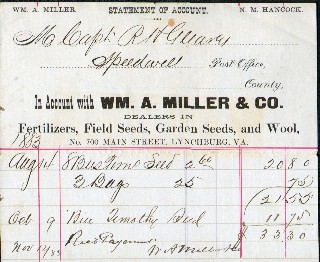 WM. A. MILLER. STATEMENT OF ACCOUNT. N. M. HANCOCK.
M Capt. R W
Speedwell Post-Office,
County,
In Account with WM. A. MILLER & CO.
DEALERS IN
Fertilizers, Field Seeds, Garden Seeds, and Wool,
No. 700 MAIN STREET, LYNCHBURG, VA.
1883
Aug 14 8 Bus Seed 2 60 20 80
3 Bag 25 75
21 55
Oct 9 Timothy Seed 11 75
Nov Rec'd Payment W A Miller $ 33 30